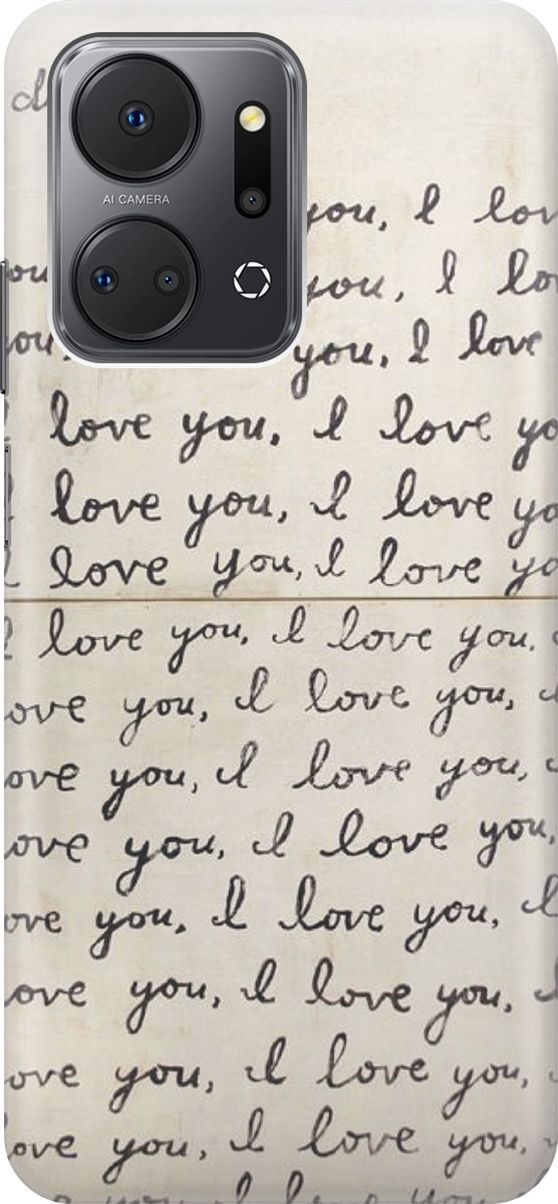 AI CAMERA
you, I lov
you you, I lo
you, you, I love
I love you, I love yo
I love you, I love yo
I love you, I love yo
I love you, I love you,
ove you, I love you, I
ove you, I love you,
ove you, I love you,
ove you, I love you, I
ove you, I love you, I
ove you, I love you,
ove you, I love you,
you, I love you